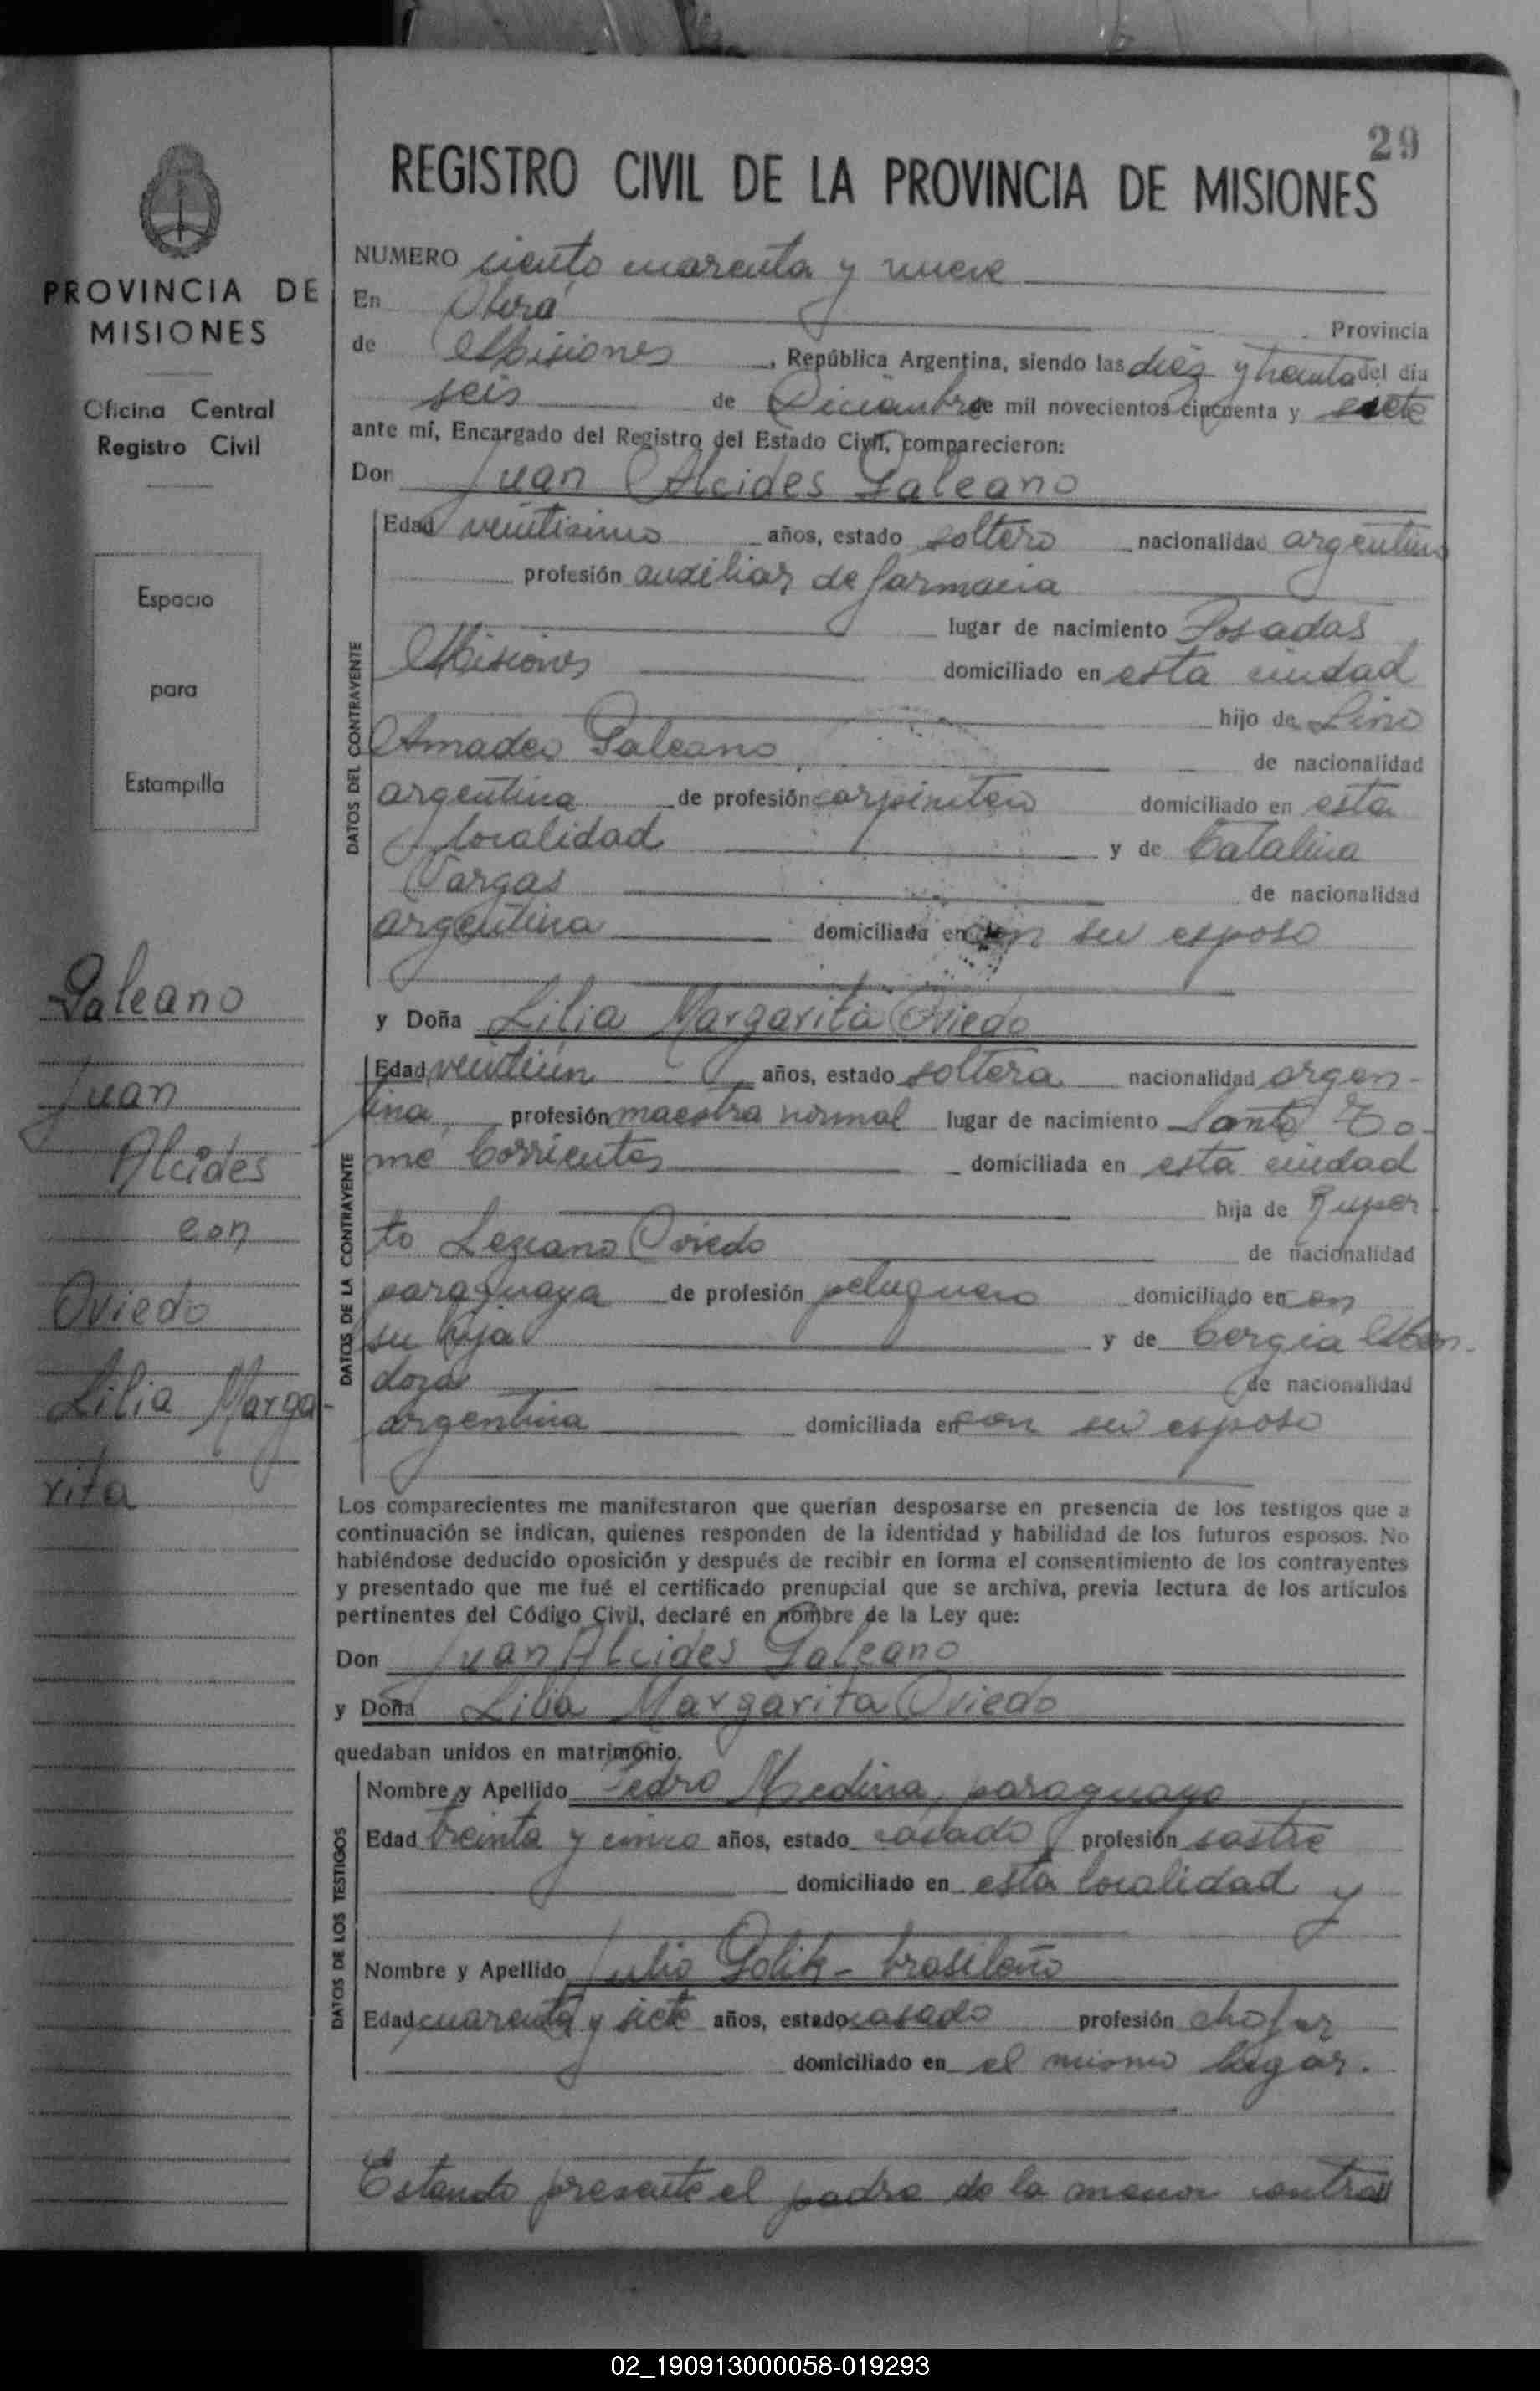 29
REGISTRO CIVIL DE LA PROVINCIA DE MISIONES
PROVINCIA DE
MISIONES
Oficina Central
Registro Civil
Espacio
para
Estampilla
Galeano
Juan
Alcides
con
Oviedo
Lilia Marga-
rita
NUMERO ciento cuarenta y nueve
En Oberá Provincia
de Misiones, República Argentina, siendo las diez y treinta del día
seis de Diciembre de mil novecientos cincuenta y siete
ante mí, Encargado del Registro del Estado Civil, comparecieron:
Don Juan Alcides Galeano
DATOS DEL CONTRAYENTE
Edad veinticinco años, estado soltero nacionalidad argentino
profesión auxiliar de farmacia
lugar de nacimiento Posadas
Misiones domiciliado en esta ciudad
hijo de Lino
Amadeo Galeano de nacionalidad
argentina de profesión carpintero domiciliado en esta
localidad y de Catalina
Vargas de nacionalidad
argentina domiciliada en con su esposo
y Doña Lilia Margarita Oviedo
DATOS DE LA CONTRAYENTE
Edad veintiún años, estado soltera nacionalidad argen-
tina, profesión maestra normal lugar de nacimiento Santo To-
mé Corrientes domiciliada en esta ciudad
hija de Ruper
to Lezcano Oviedo de nacionalidad
paraguaya de profesión peluquero domiciliado en con
su hija y de Corgia Men-
doza de nacionalidad
argentina domiciliada en con su esposo
Los comparecientes me manifestaron que querían desposarse en presencia de los testigos que a
continuación se indican, quienes responden de la identidad y habilidad de los futuros esposos. No
habiéndose deducido oposición y después de recibir en forma el consentimiento de los contrayentes
y presentado que me fué el certificado prenupcial que se archiva, previa lectura de los artículos
pertinentes del Código Civil, declaré en nombre de la Ley que:
Don Juan Alcides Galeano
y Doña Lilia Margarita Oviedo
quedaban unidos en matrimonio.
DATOS DE LOS TESTIGOS
Nombre y Apellido Pedro Medina, paraguayo
Edad treinta y cinco años, estado casado profesión sastre
domiciliado en esta localidad y
Nombre y Apellido Julio Golik - brasileño
Edad cuarenta y siete años, estado casado profesión chofer
domiciliado en el mismo lugar.
Estando presente el padre de la menor contra
02_190913000058-019293